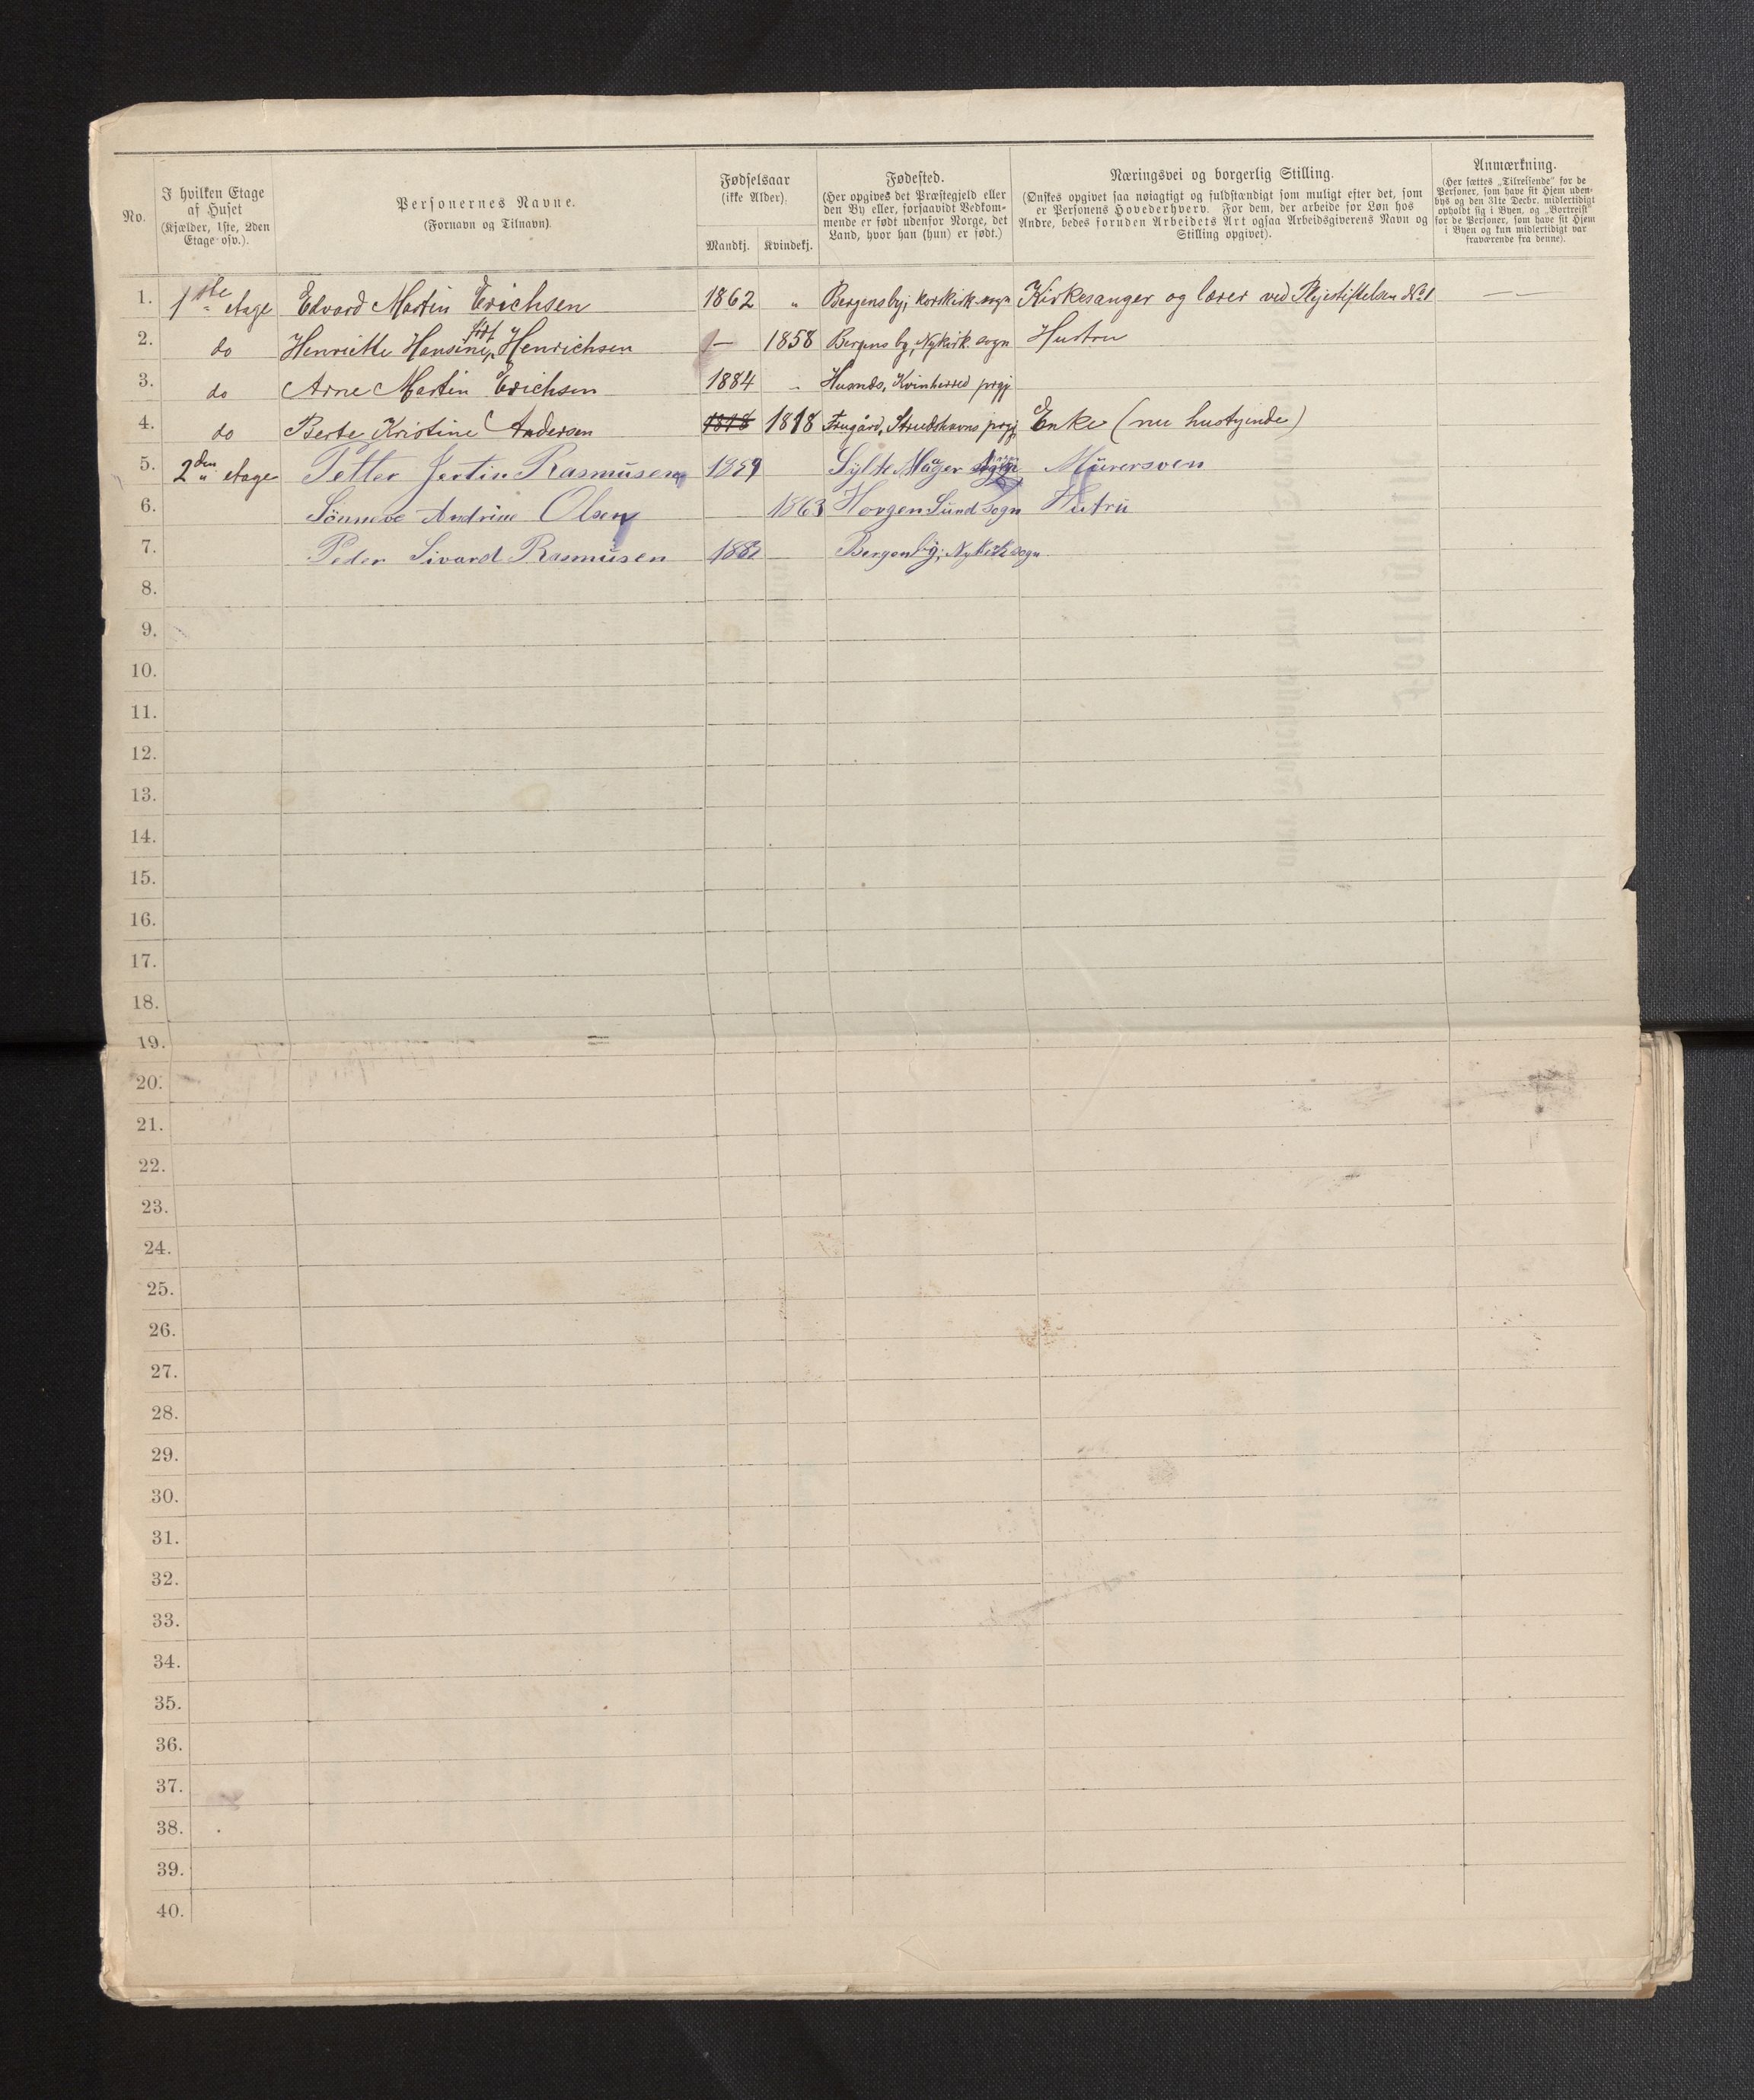 No.
I hvilken Etage
af Huset
(Kjælder, 1ste, 2den
Etage osv.).
Personernes Navne.
(Fornavn og Tilnavn).
Fødselsaar
(ikke Alder).
Mandkj. Kvindekj.
Fødested.
(Her opgives det Præstegjeld eller
den By eller, forsaavidt Vedkom-
mende er født udenfor Norge, det
Land, hvor han (hun) er født.)
Næringsvei og borgerlig Stilling.
(Ønskes opgivet saa nøiagtigt og fuldstændigt som muligt efter det, som
er Personens Hovederhverv. For dem, der arbeide for Løn hos
Andre, bedes foruden Arbeidets Art ogsaa Arbeidsgiverens Navn og
Stilling opgivet).
Anmærkning.
(Her sættes „Tilreisende“ for de
Personer, som have sit Hjem uden-
bys og den 31te Decbr. midlertidigt
opholdt sig i Byen, og „Bortreist“
for de Personer, som have sit Hjem
i Byen og kun midlertidigt var
fraværende fra denne).
1. 1ste etage Edvard Martin Erichsen 1862 " Bergens by, Korskirk. sogn Kirkesanger og lærer ved Plejestiftelsen No 1 —
2. do Henriette Hansine, født Henrichsen — 1858 Bergens by, Nykirk. sogn Hustru
3. do Arne Martin Erichsen 1884 " Husnæs, Kvinherred prgj.
4. do Berte Kristine Andersen 1818 1818 prgj. Enke (nu hustyende)
5. 2den etage Petter Jertin Rasmusen 1859 Sylte Murersven
6. Sønneve Andrine Olsen 1863 Sund sogn Hutru
7. Peder Sivard Rasmusen 1882 — Bergen by, Nykirk sogn
8.
9.
10.
11.
12.
13.
14.
15.
16.
17.
18.
19.
20.
21.
22.
23.
24.
25.
26.
27.
28.
29.
30.
31.
32.
33.
34.
35.
36.
37.
38.
39.
40.